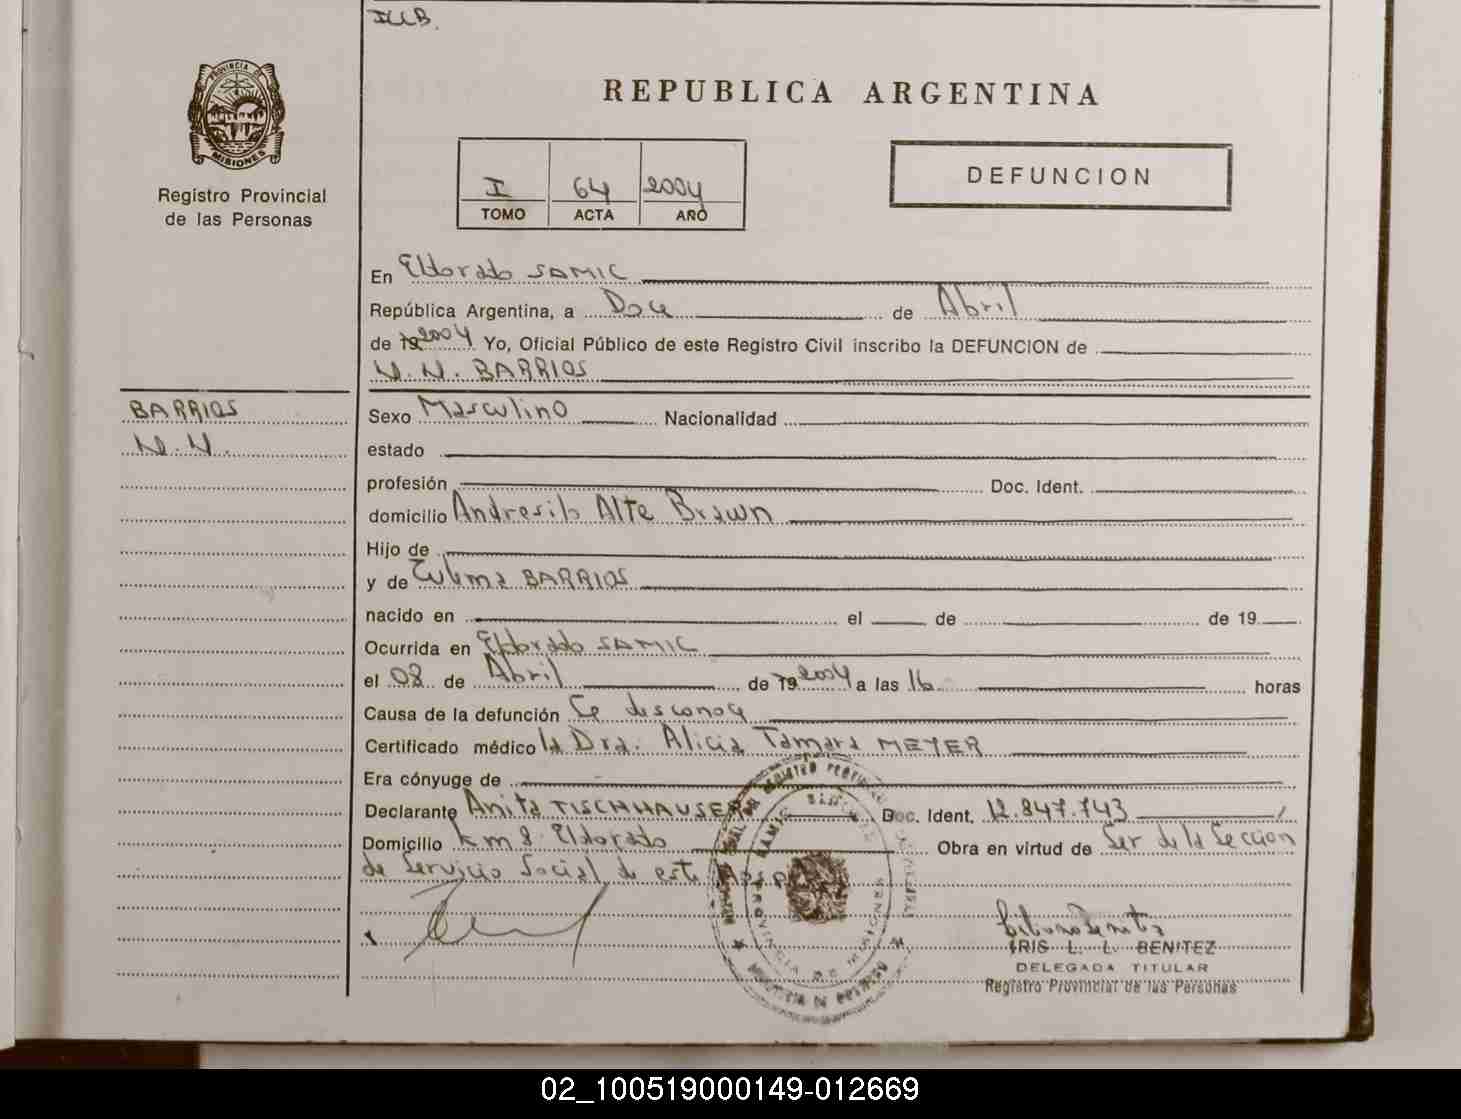 ILLB.
PROVINCIA DE
MISIONES
Registro Provincial
de las Personas
REPUBLICA ARGENTINA
I 64 2004
TOMO ACTA AÑO
DEFUNCION
En Eldorado SAMIC
República Argentina, a Doce de Abril
de 19 2004 Yo, Oficial Público de este Registro Civil inscribo la DEFUNCION de
N. N. BARRIOS
BARRIOS
N. N.
Sexo Masculino Nacionalidad
estado
profesión Doc. Ident.
domicilio Andresito Alte Brown
Hijo de
y de Zulema BARRIOS
nacido en el de de 19
Ocurrida en Eldorado SAMIC
el 08 de Abril de 19 2004 a las 16 horas
Causa de la defunción Se desconoce
Certificado médico la Dra. Alicia Tamara MEYER
Era cónyuge de
Declarante Anita TISCHHAUSER Doc. Ident. 12.847.743
Domicilio km 8 Eldorado Obra en virtud de Ser de la Sección
de Servicio Social de este
IRIS L. L. BENITEZ
DELEGADA TITULAR
Registro Provincial de las Personas
02_100519000149-012669